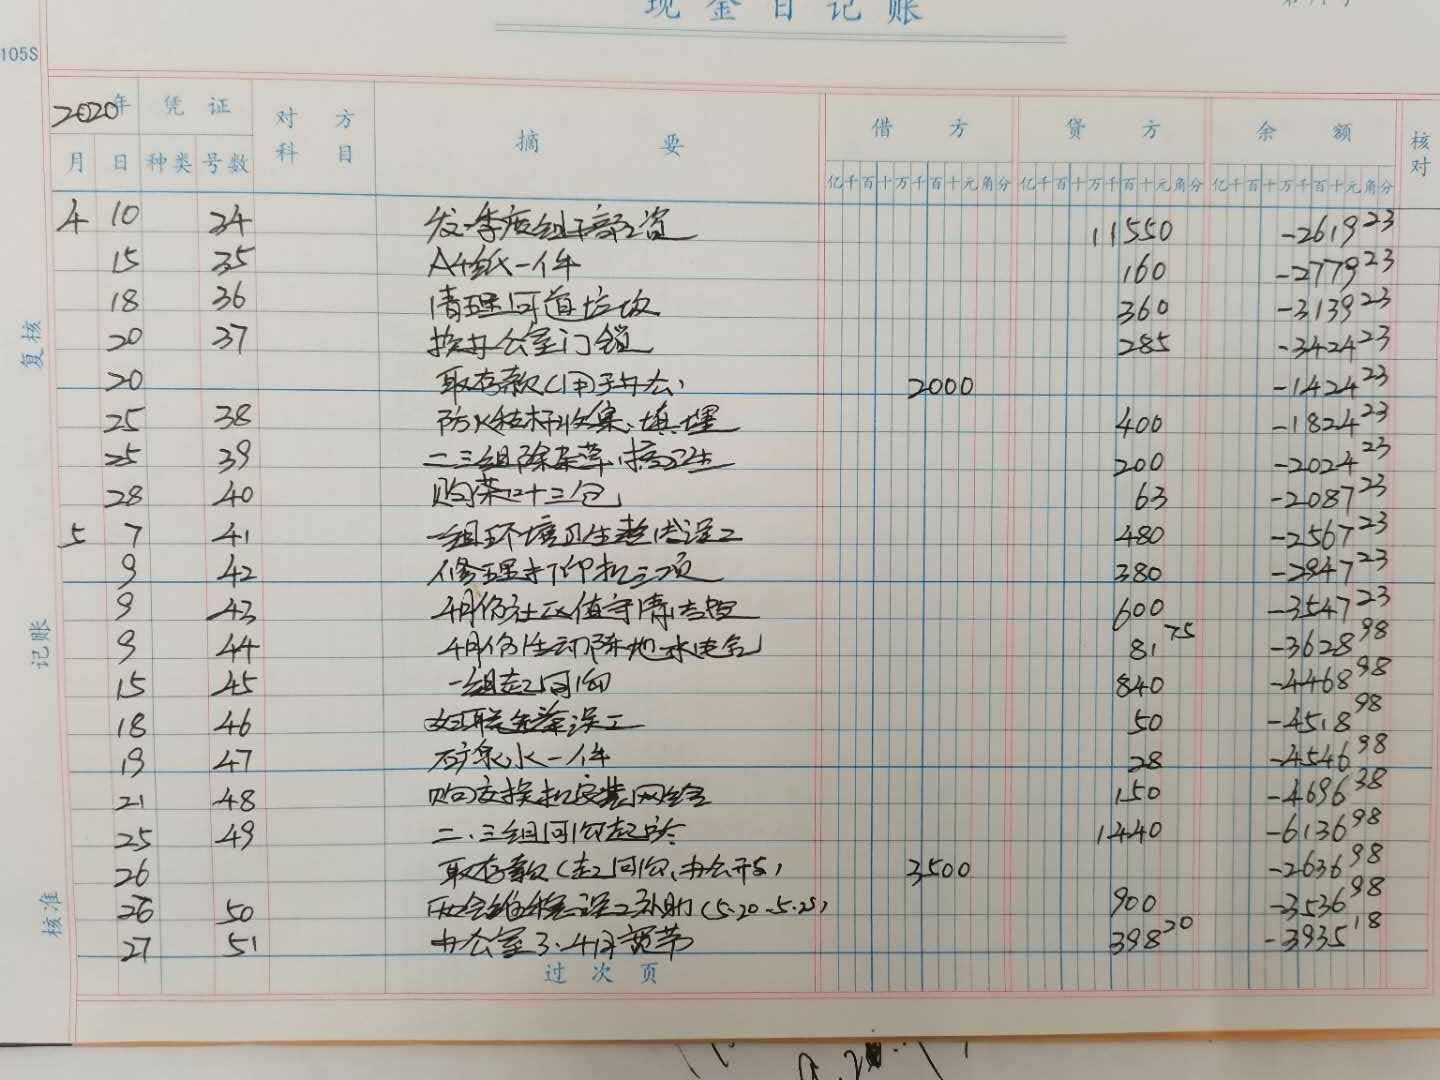 现金日记账
105S
2020年 凭证 对方科目 摘要 借方 贷方 余额 核对
月 日 种类 号数 亿千百十万千百十元角分 亿千百十万千百十元角分 亿千百十万千百十元角分
4 10 34 发一季度组干部工资 11550 -2619 23
15 35 A4纸一件 160 -2779 23
18 36 清理河道垃圾 360 -3139 23
20 37 换办公室门锁 285 -3424 23
20 取存款(用于办公) 2000 -1424 23
25 38 防火秸秆收集、填埋 400 -1824 23
25 39 二三组除杂草、搞卫生 200 -2024 23
28 40 购茶叶十三包 63 -2087 23
5 7 41 一组环境卫生整治误工 480 -2567 23
9 42 修理打印机三项 380 -2947 23
9 43 4月份社区值守清洁 600 -3547 23
9 44 4月份活动阵地水电气 81 75 -3628 98
15 45 一组 河沟 840 -4468 98
18 46 妇联 误工 50 -4518 98
19 47 矿泉水一件 28 -4546 98
21 48 购交换机安装网络 150 -4696 38
25 49 二、三组河沟 1440 -6136 98
26 取存款( 河沟、办公开支) 3500 -2636 98
26 50 社会维稳误工补助(5.20-5.25) 900 -3536 98
27 51 办公室3.4月宽带 398 20 -3935 18
过次页
复核
记账
核准